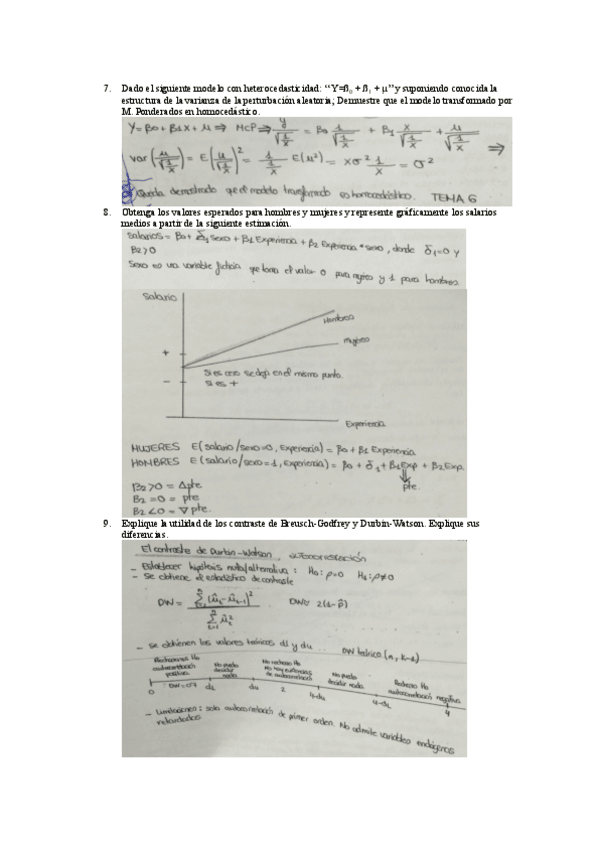 7. Dado el siguiente modelo con heterocedasticidad: “Y=ß₀ + ß₁ + µ” y suponiendo conocida la
estructura de la varianza de la perturbación aleatoria; Demuestre que el modelo transformado por
M. Ponderados en homocedástico.
Y = β0 + β1X + μ ⇒ MCP ⇒ y/√(1/x) = β0 1/√(1/x) + β1 x/√(1/x) + μ/√(1/x) ⇒
var (μ/√(1/x)) = E (μ/√(1/x))² = 1/(1/x) E(μ²) = xσ² 1/x = σ²
Queda demostrado que el modelo transformado es homocedástico. TEMA 6
8. Obtenga los valores esperados para hombres y mujeres y represente gráficamente los salarios
medios a partir de la siguiente estimación.
Salarios = β0 + δ1 Sexo + β1 Experiencia + β2 Experiencia * sexo, donde δ1=0 y
B2>0
Sexo es una variable ficticia que toma el valor 0 para mujeres y 1 para hombres.
Salario
Hombres
mujeres
+
Si es cero se deja en el mismo punto.
−
si es +
Experiencia
MUJERES E(salario/sexo=0, Experiencia) = β0 + β1 Experiencia
HOMBRES E(salario/sexo=1, Experiencia) = β0 + δ1 + β1Exp + β2 Exp.
pte.
B2>0 = Δpte
B2=0 = pte
B2<0 = ∇ pte.
9. Explique la utilidad de los contraste de Breusch-Godfrey y Durbin-Watson. Explique sus
diferencias.
El contraste de Durbin-Watson, autocorrelación
- Establecer hipótesis nula/alternativa: H0: ρ=0 H1: ρ≠0
- Se obtiene el estadístico de contraste
DW = Σ(û_t - û_t-1)² / Σ û_t² DW≈ 2(1-ρ̂)
- Se obtienen los valores teóricos dl y du ... DW teórico (n, k-1)
Rechazamos H0 autocorrelación positiva
No puedo decidir nada
No rechazo H0 No hay evidencias de autocorrelación
No puedo decidir nada
Rechazo H0 autocorrelación negativa
0 DW=0'7 dL du 2 4-du 4-dL 4
- Limitaciones: solo autocorrelación de primer orden. No admite variables endógenas
retardadas